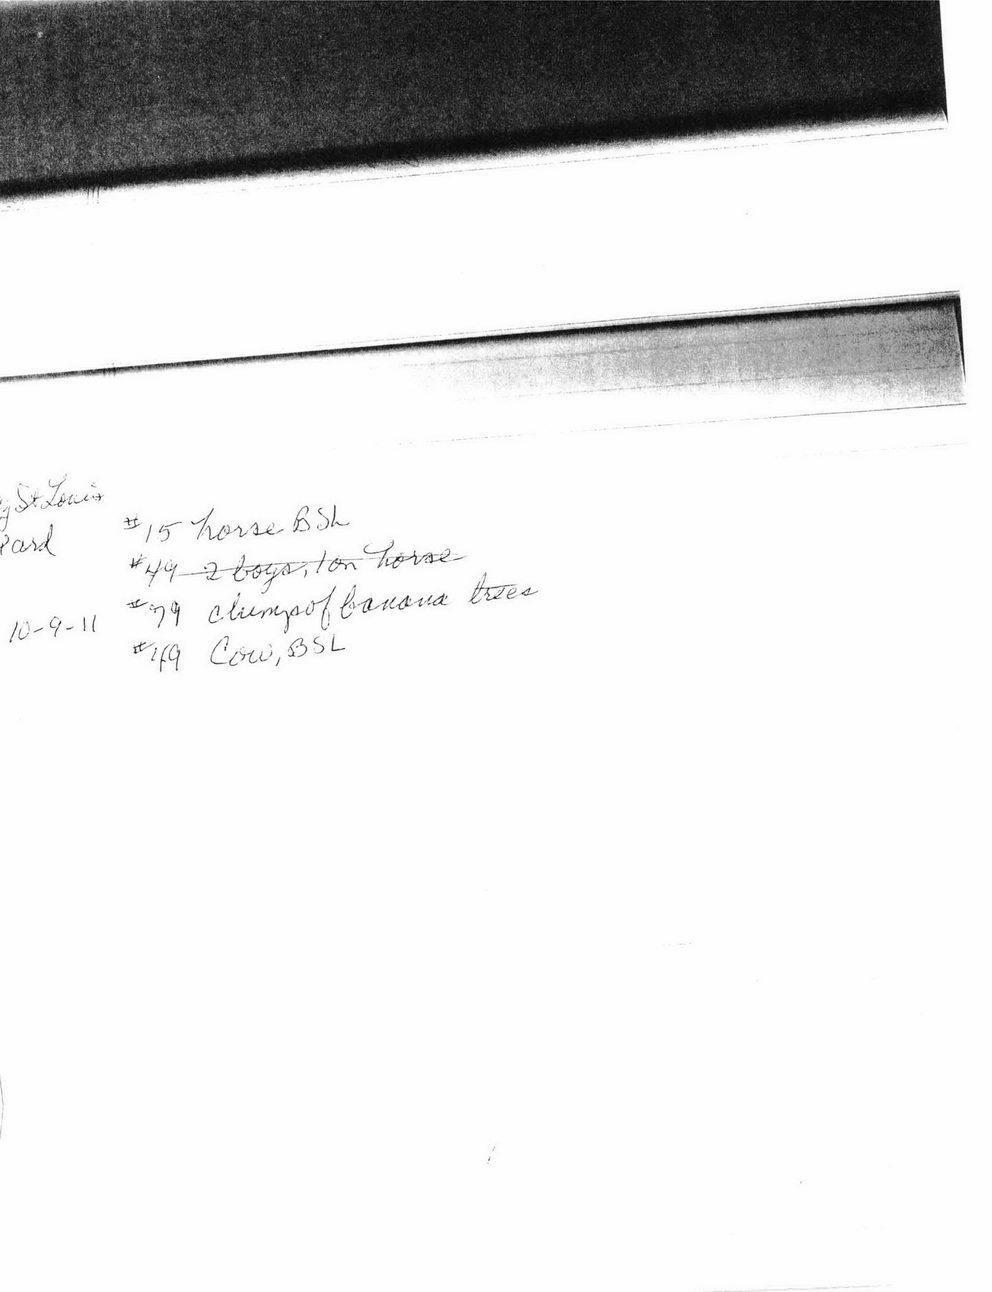 y St Louis
#15 horse BSL
ard
#49 2 boys, 1 on horse
#79 clumps of banana trees
10-9-11
#49 Cow, BSL